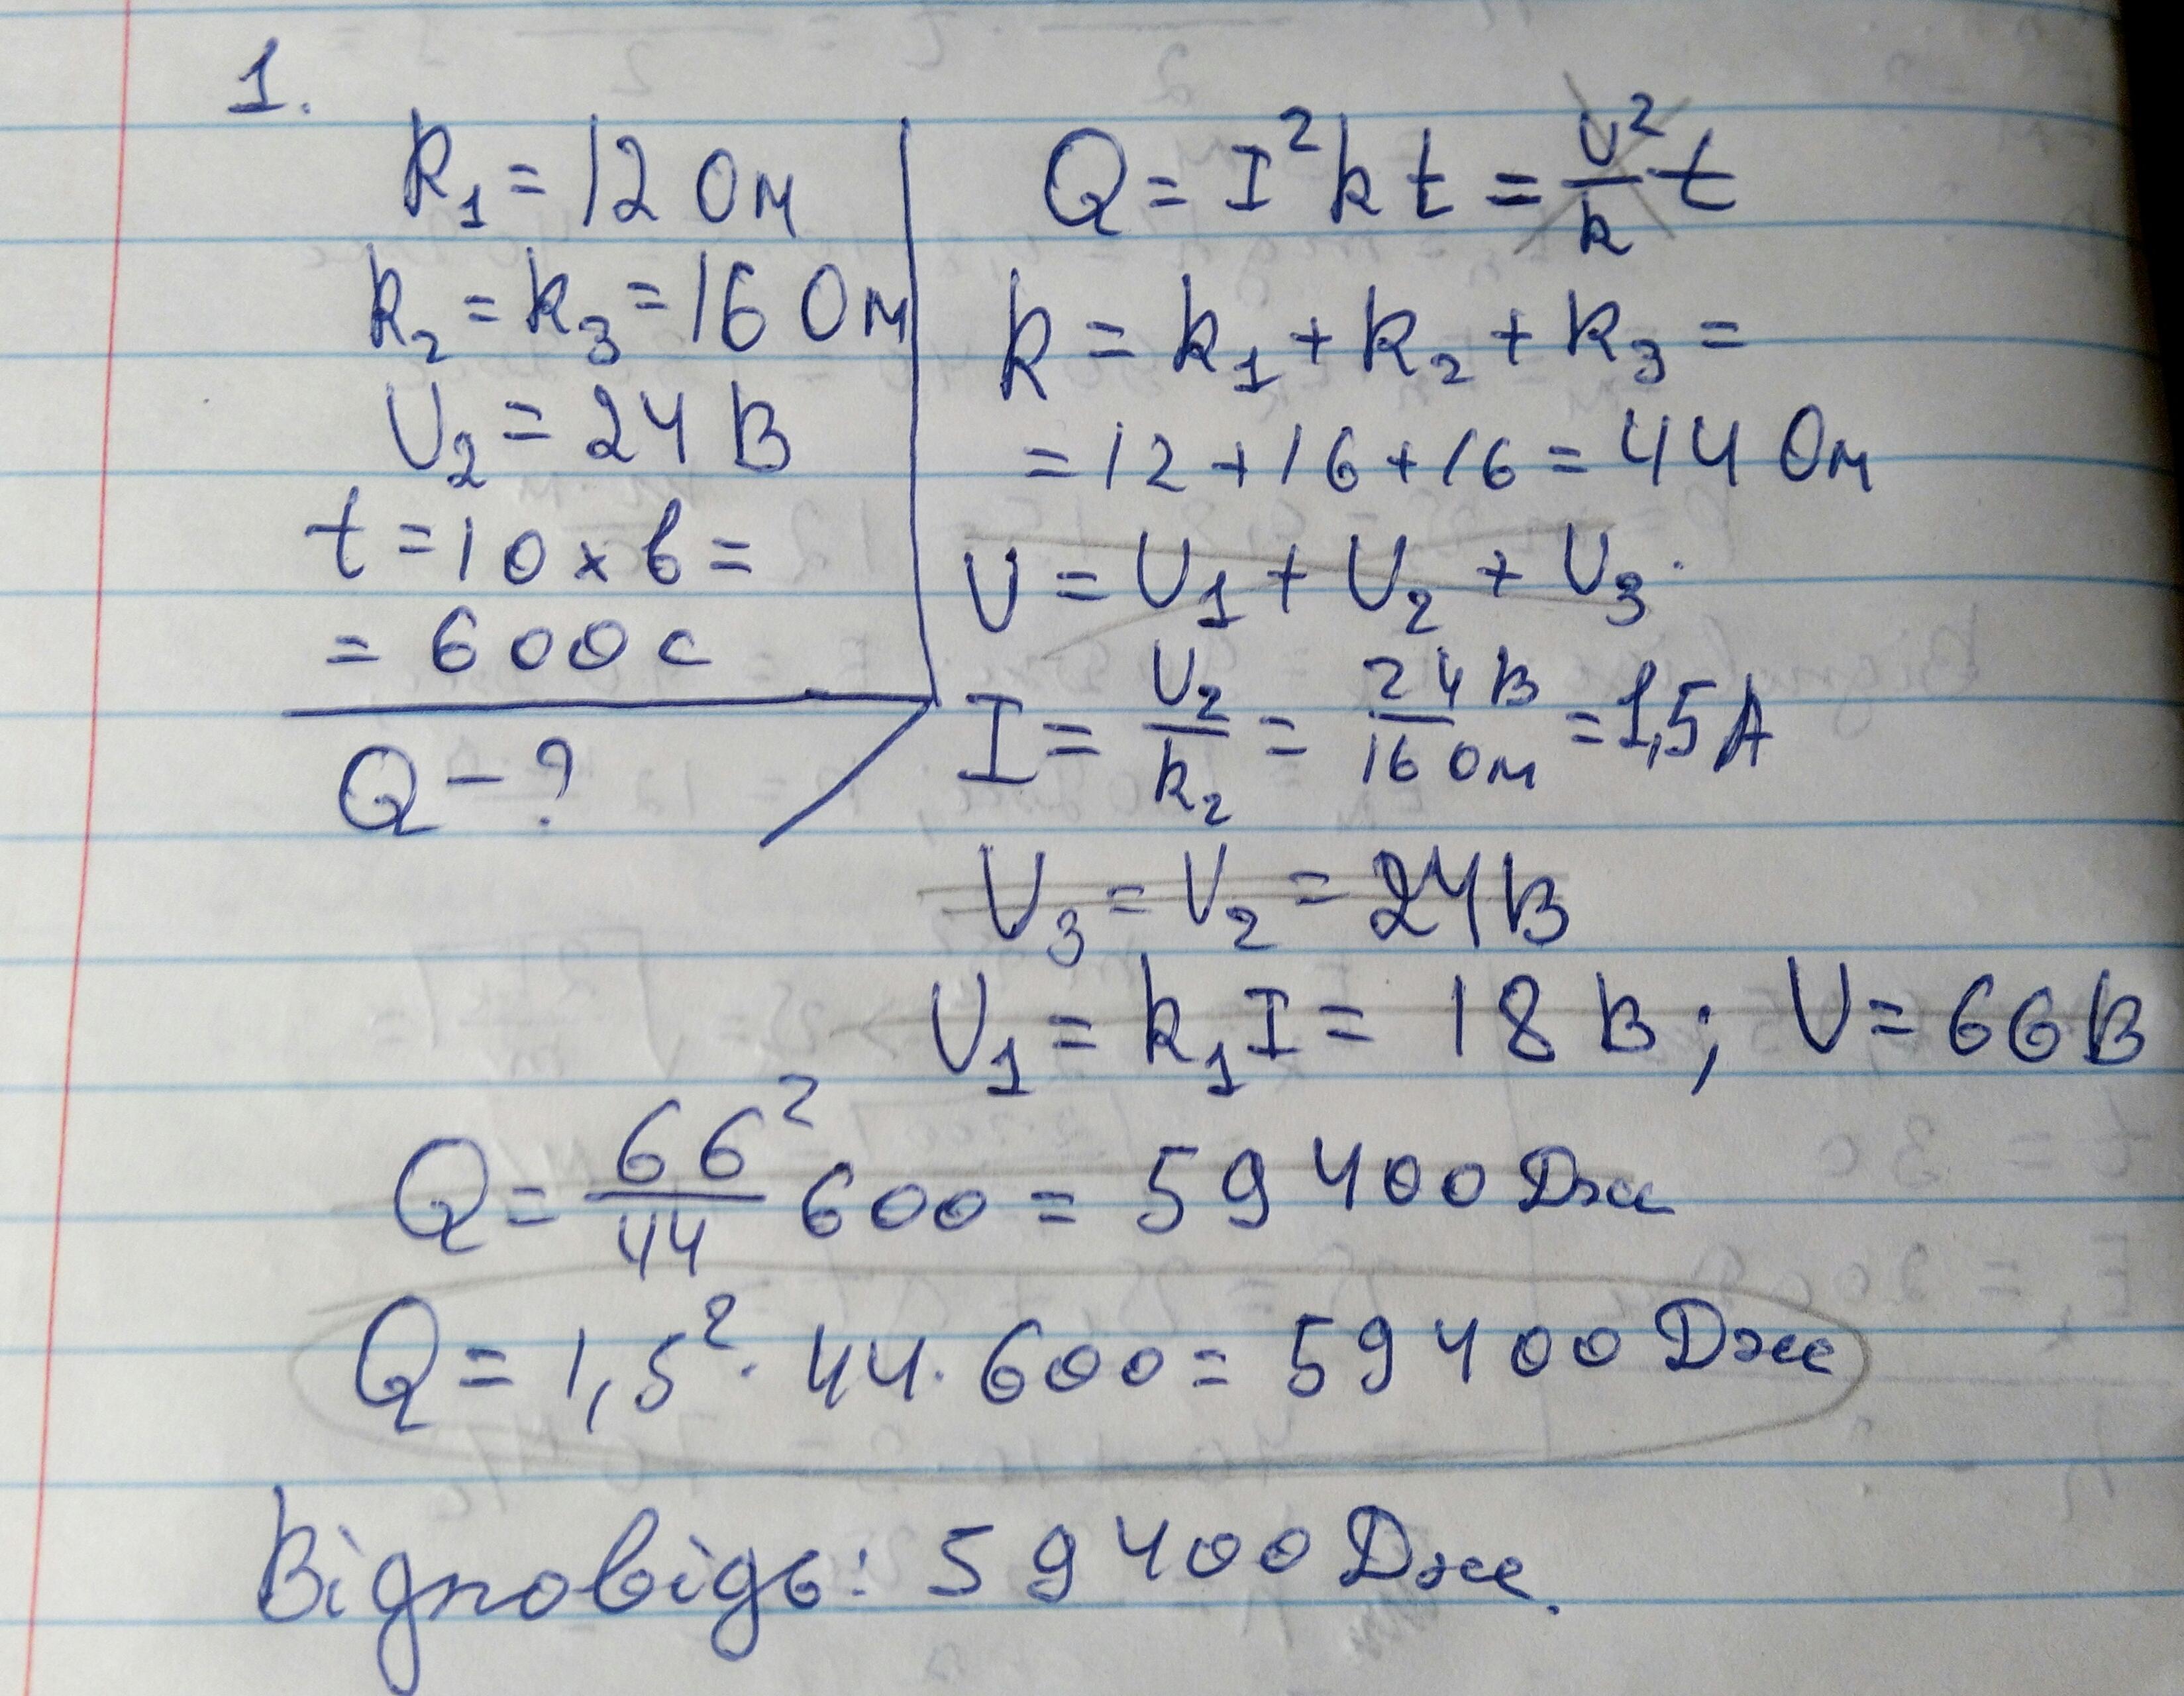 1.
R₁ = 12 Ом
R₂ = R₃ = 16 Ом
U₂ = 24 В
t = 10 хв =
= 600 с
Q – ?
Q = I² R t = U²/R t
R = R₁ + R₂ + R₃ =
= 12 + 16 + 16 = 44 Ом
U = U₁ + U₂ + U₃.
I = U₂/R₂ = 24 В/16 Ом = 1,5 А
U₃ = U₂ = 24 В
U₁ = R₁ I = 18 В; U = 66 В
Q = 66²/44 600 = 59 400 Дж
Q = 1,5² · 44 · 600 = 59 400 Дж
Відповідь: 59 400 Дж.